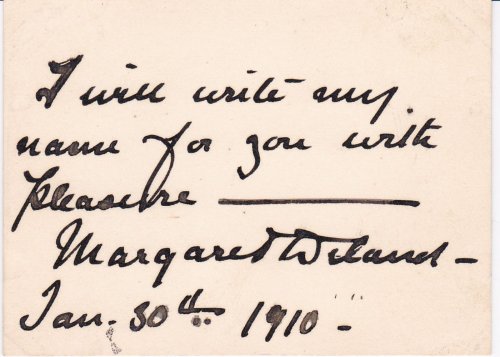 I will write my
name for you with
pleasure ———
Margaret Deland –
Jan. 30th 1910 –